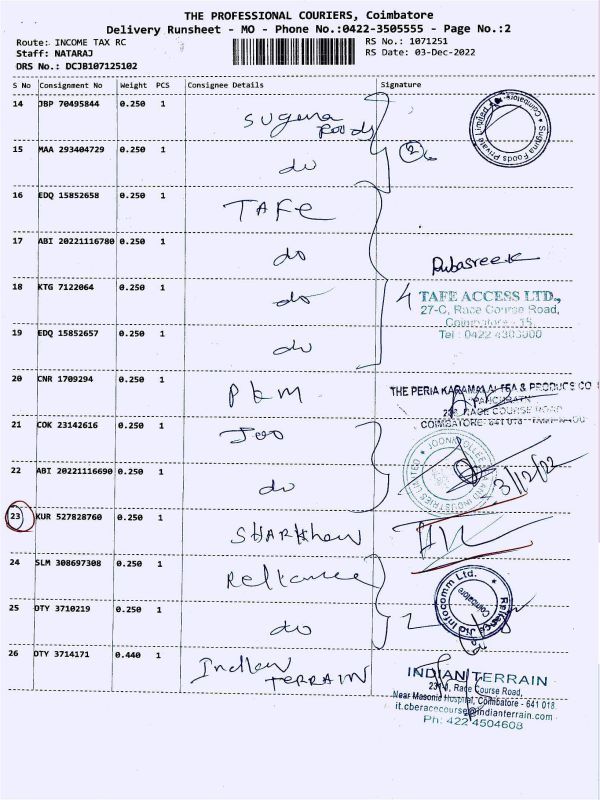 THE PROFESSIONAL COURIERS, Coimbatore
Delivery Runsheet - MO - Phone No.:0422-3505555 - Page No.:2
Route: INCOME TAX RC
Staff: NATARAJ
DRS No.: DCJB107125102
RS No.: 1071251
RS Date: 03-Dec-2022
S No Consignment No Weight PCS Consignee Details Signature
14 JBP 70495844 0.250 1 Suguna Foods
Suguna Foods Private Limited Coimbatore
15 MAA 293404729 0.250 1 do
2
16 EDQ 15852658 0.250 1 TAFE
17 ABI 20221116780 0.250 1 do
Rubasree.K
18 KTG 7122064 0.250 1 do
4
TAFE ACCESS LTD.,
27-C, Race Course Road,
Coimbatore - 15.
Tel : 0422 4303000
19 EDQ 15852657 0.250 1 do
20 CNR 1709294 0.250 1 PKM
THE PERIA KARAMALAI TEA & PRODUCE CO
PANCHRATN
RACE COURSE ROAD
COIMBATORE- 641 018
21 COK 23142616 0.250 1 Joo
22 ABI 20221116690 0.250 1 do
3/12/22
23 KUR 527828760 0.250 1 SHARKhan
24 SLM 308697308 0.250 1 Reliance
Reliance Jio Infocomm Ltd.
Coimbatore
25 OTY 3710219 0.250 1 do
2
26 OTY 3714171 0.440 1 Indian TERRAIN
INDIAN TERRAIN
Race Course Road,
Near Masonic Hospital, Coimbatore - 641 018.
it.cberacecourse@indianterrain.com
Ph: 422 4504608